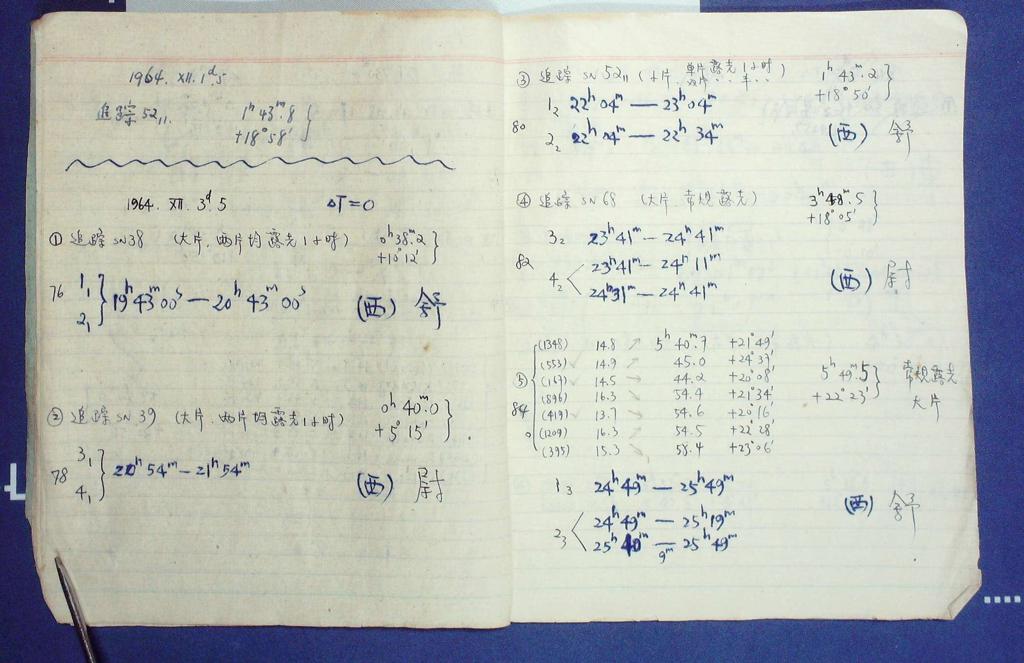 1964. XII. 1ᵈ.5
追踪 52₁₁. 1ʰ 43ᵐ.8
+18° 58'
1964. XII. 3ᵈ.5 ΔT=0
① 追踪 SN38 (大片、两片均露光1小时) 0ʰ38ᵐ.2
+10°12'
76 1₁ 2₁ 19ʰ 43ᵐ 00ˢ — 20ʰ 43ᵐ 00ˢ (西) 舒
② 追踪 SN 39 (大片、两片均露光1小时) 0ʰ 40ᵐ.0
+5° 15'
78 3₁ 4₁ 20ʰ 54ᵐ — 21ʰ 54ᵐ (西) 尉
③ 追踪 SN 52₁₁ 露光1小时 1ʰ 43ᵐ.2
+18° 50'
1₂ 22ʰ 04ᵐ — 23ʰ 04ᵐ
80 2₂ 22ʰ 04ᵐ — 22ʰ 34ᵐ (西) 舒
④ 追踪 SN 68 (大片、常规露光) 3ʰ 48ᵐ.5
+18° 05'
3₂ 23ʰ 41ᵐ — 24ʰ 41ᵐ
82 4₂ 23ʰ 41ᵐ — 24ʰ 11ᵐ (西) 尉
24ʰ 31ᵐ — 24ʰ 41ᵐ
(1348) 14.8 ↗ 5ʰ 40ᵐ.7 +21° 49'
(553) 14.9 ↗ 45.0 +24° 37'
⑤ (169) 14.5 ↘ 44.2 +20° 08' 5ʰ 49ᵐ.5 常规露光
(896) 16.3 ↘ 54.4 +21° 34' +22° 23' 大片
84 (419) 13.7 ↘ 54.6 +20° 16'
(1209) 16.3 ↘ 54.5 +22° 28'
(395) 15.3 ↘ 58.4 +23° 06'
1₃ 24ʰ 49ᵐ — 25ʰ 49ᵐ (西) 舒
2₃ 24ʰ 49ᵐ — 25ʰ 19ᵐ
25ʰ 40ᵐ — 25ʰ 49ᵐ
9ᵐ